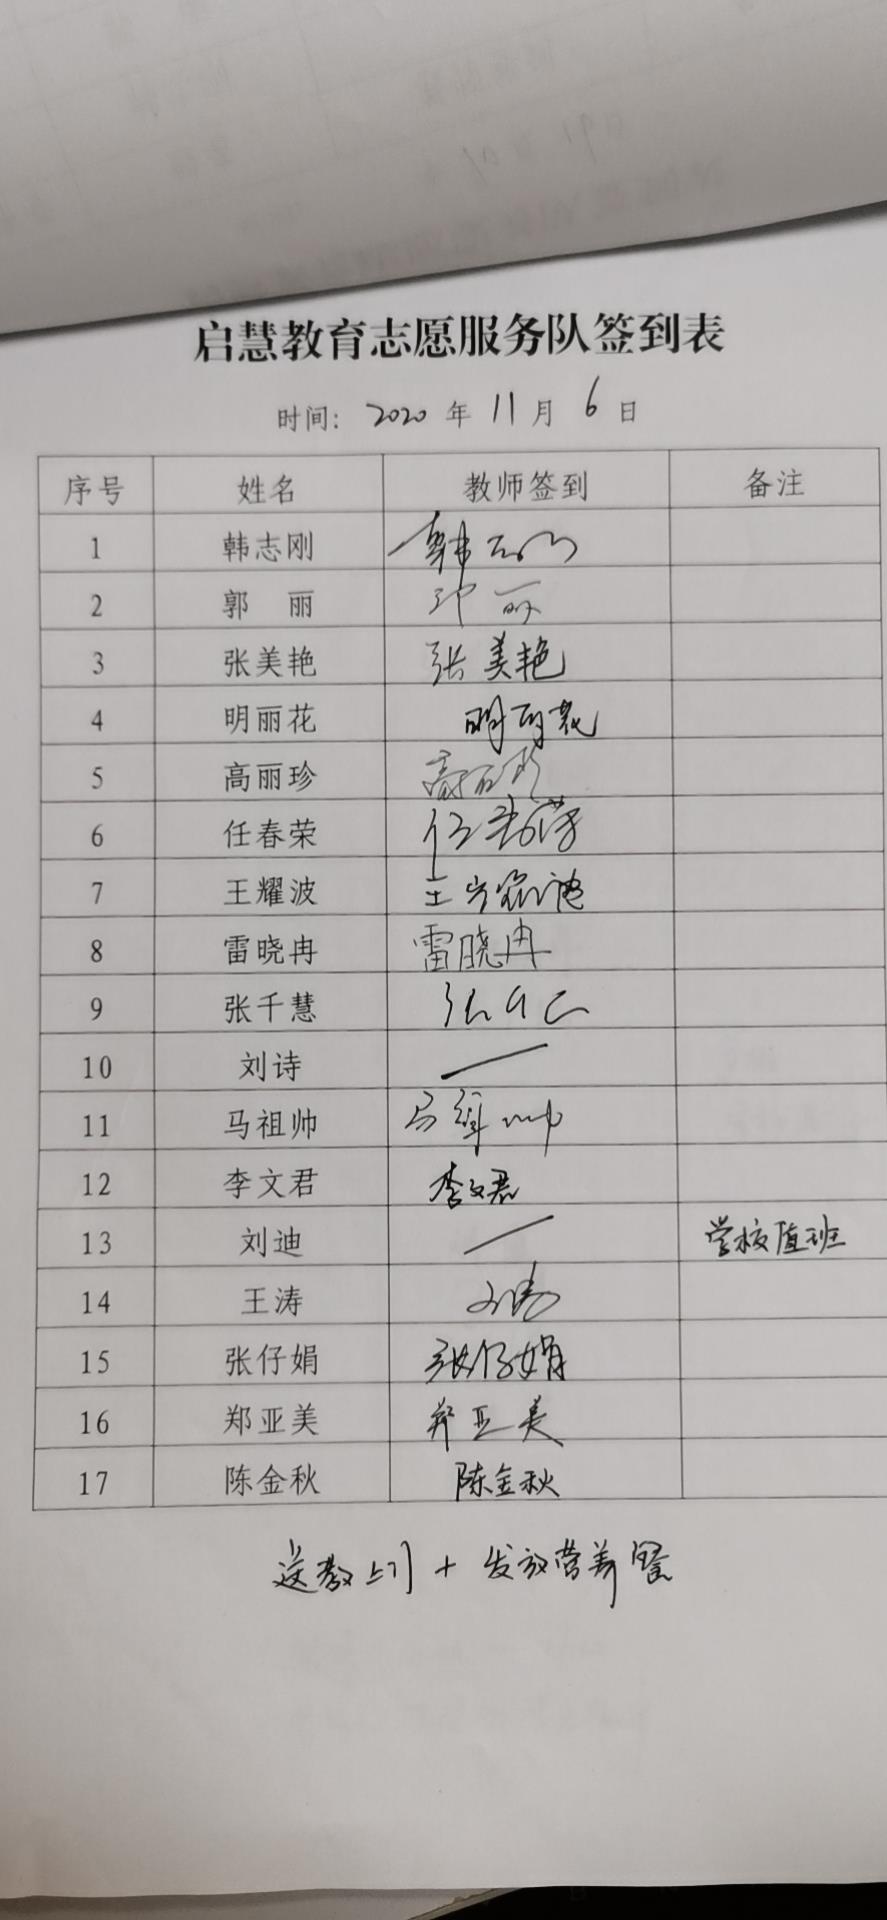 启慧教育志愿服务队签到表
时间: 2020 年 11 月 6 日
序号 姓名 教师签到 备注
1 韩志刚 韩志刚
2 郭 丽 郭丽
3 张美艳 张美艳
4 明丽花 明丽花
5 高丽珍 高丽珍
6 任春荣 任春荣
7 王耀波
8 雷晓冉 雷晓冉
9 张千慧 张千慧
10 刘诗 —
11 马祖帅 马祖帅
12 李文君 李文君
13 刘迪 — 学校值班
14 王涛 王涛
15 张仔娟 张仔娟
16 郑亚美 郑亚美
17 陈金秋 陈金秋
送教上门 + 发放营养餐